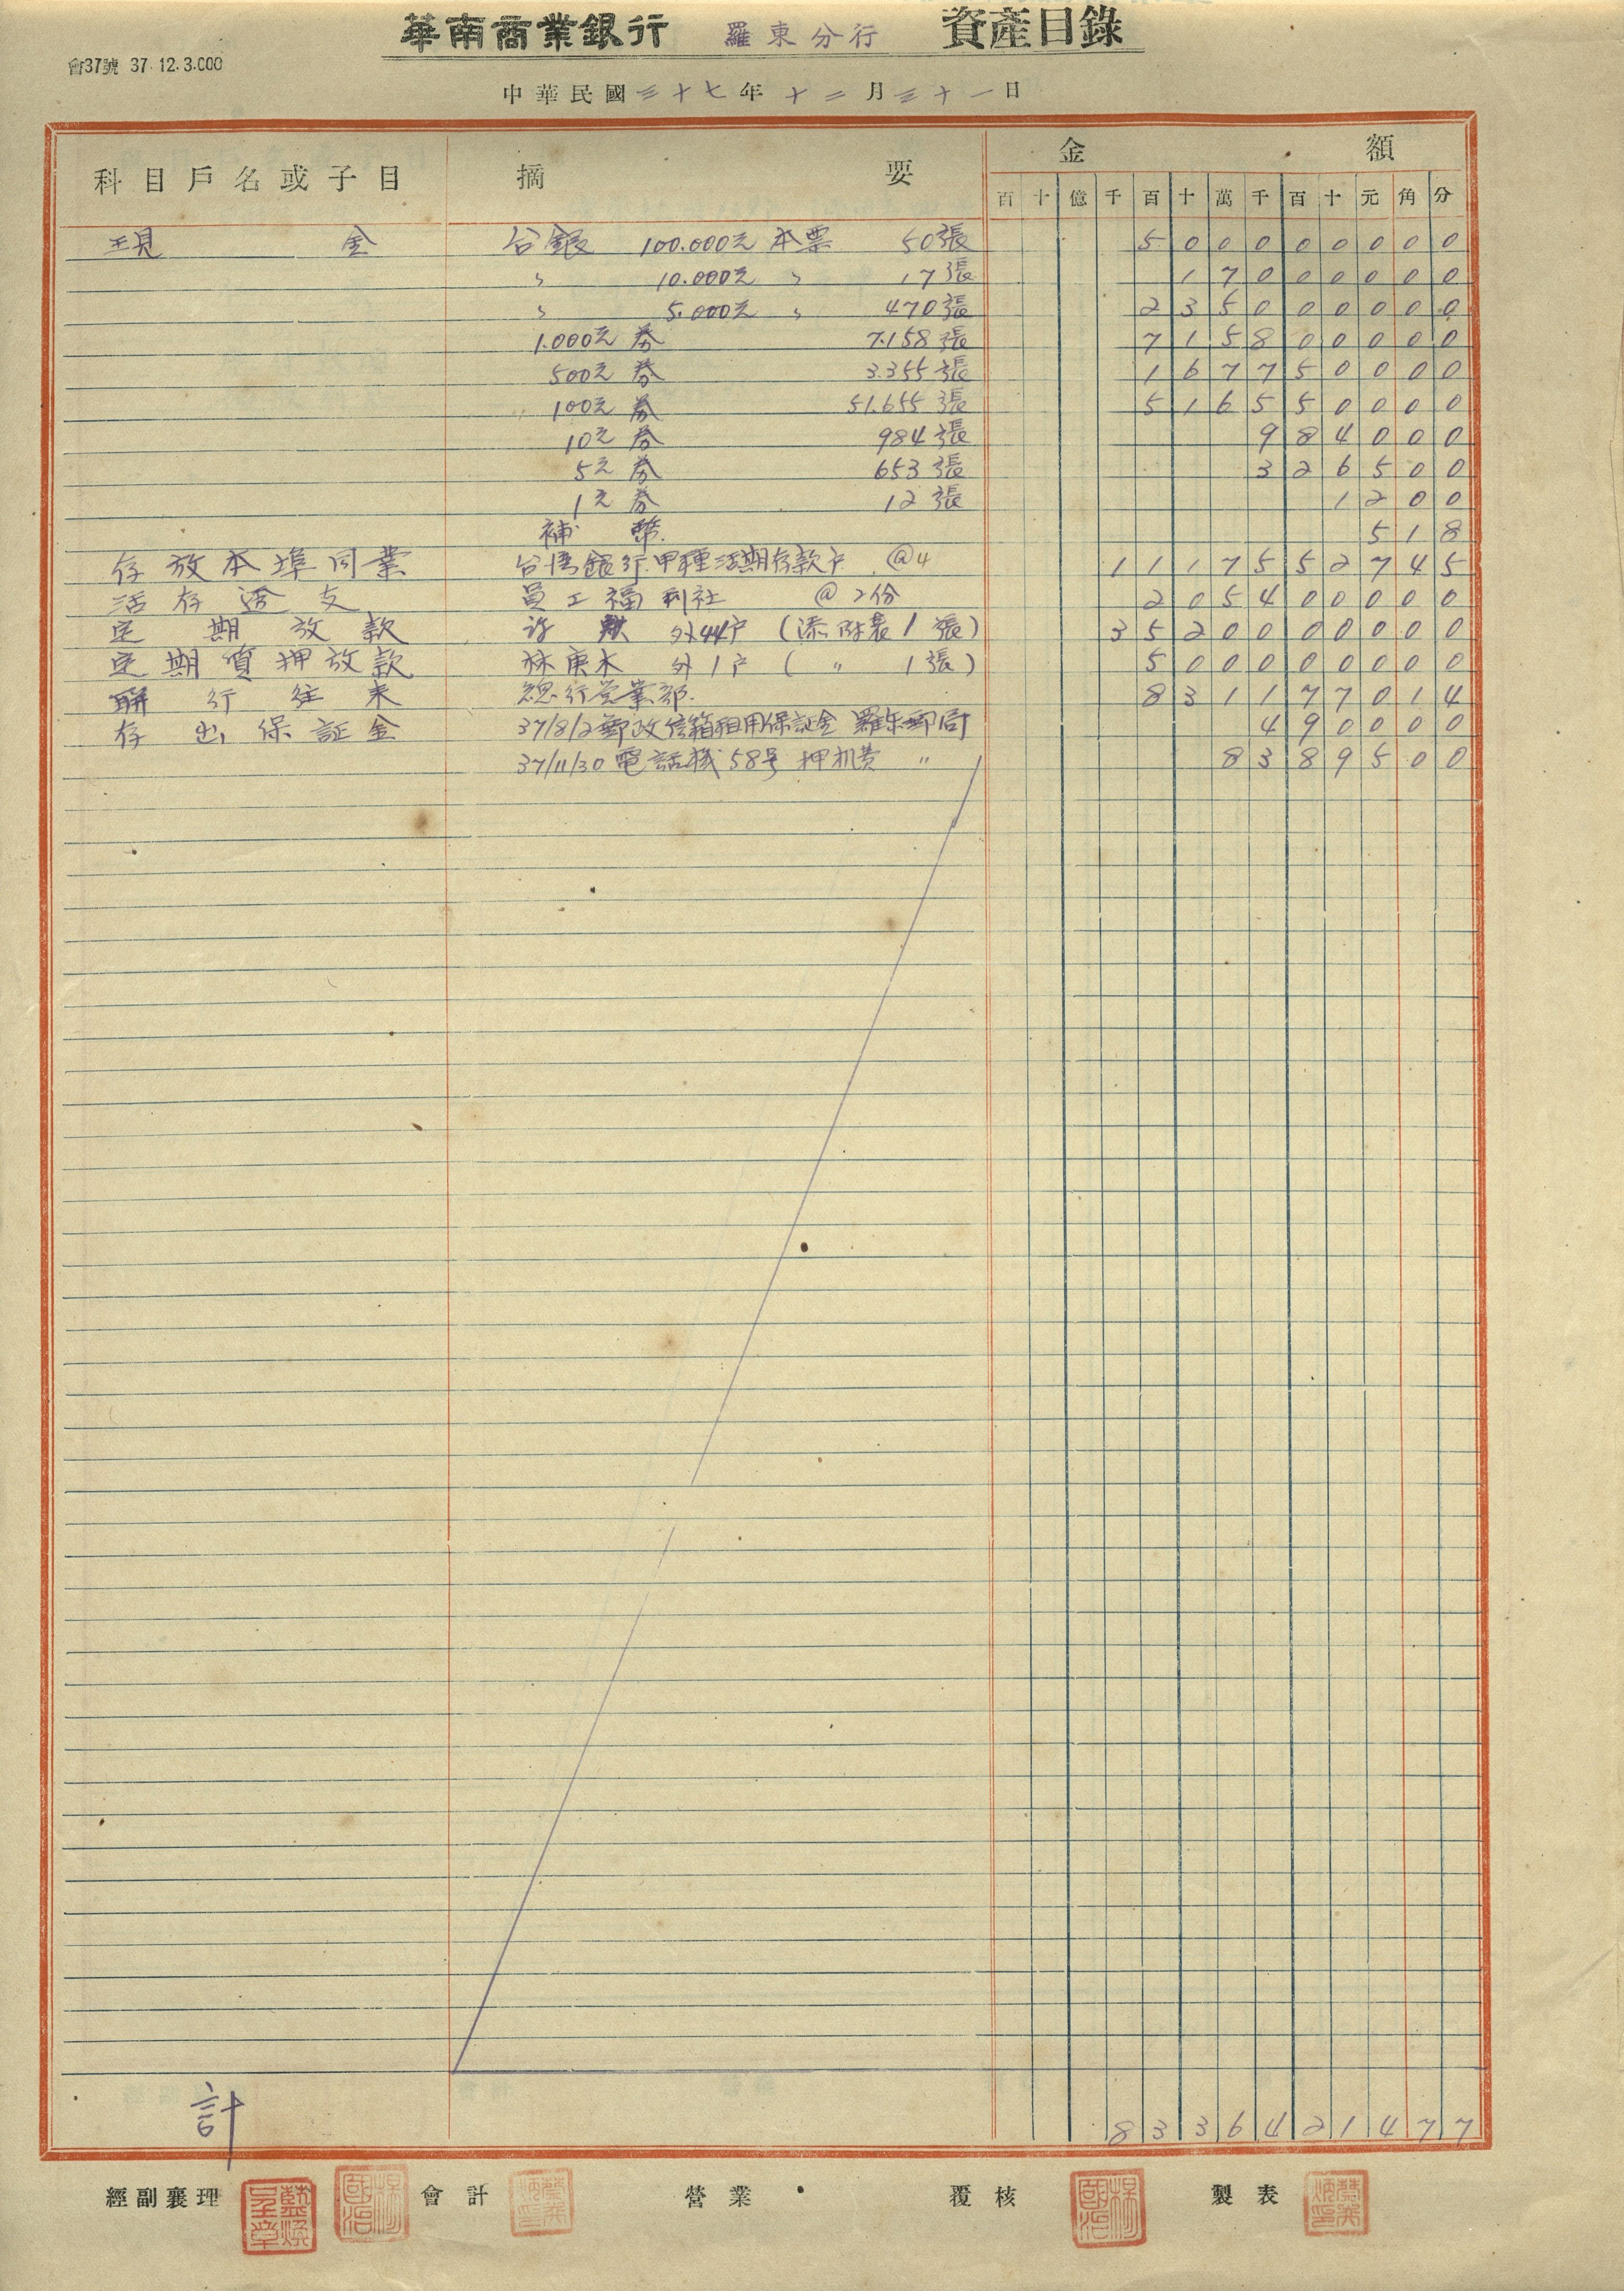 華南商業銀行 羅東分行 資產目錄
會37號 37.12.3.000
中華民國三十七年十二月三十一日
科目戶名或子目 摘要 金額
百十億千百十萬千百十元角分
現金 台銀 100.000元 本票 50張 500000000
〃 10.000元 〃 17張 17000000
〃 5.000元 〃 470張 235000000
1.000元 券 7.158張 715800000
500元 券 3.355張 167750000
100元 券 51.655張 516550000
10元 券 984張 984000
5元 券 653張 326500
1元 券 12張 1200
補幣 518
存放本埠同業 台湾銀行甲種活期存款戶 @4 1117552745
活存透支 員工福利社 @2份 205400000
定期放款 許 外44戶 (添附表1張) 3520000000
定期質押放款 林庚木 外1戶 ( 〃 1張) 500000000
聯行往来 總行営業部 831177014
存出保証金 37/8/2郵政信箱租用保証金 羅東郵局 490000
37/11/30電話機58号 押机费 〃 8389500
計 8336421477
經副襄理 會計 營業 覆核 製表